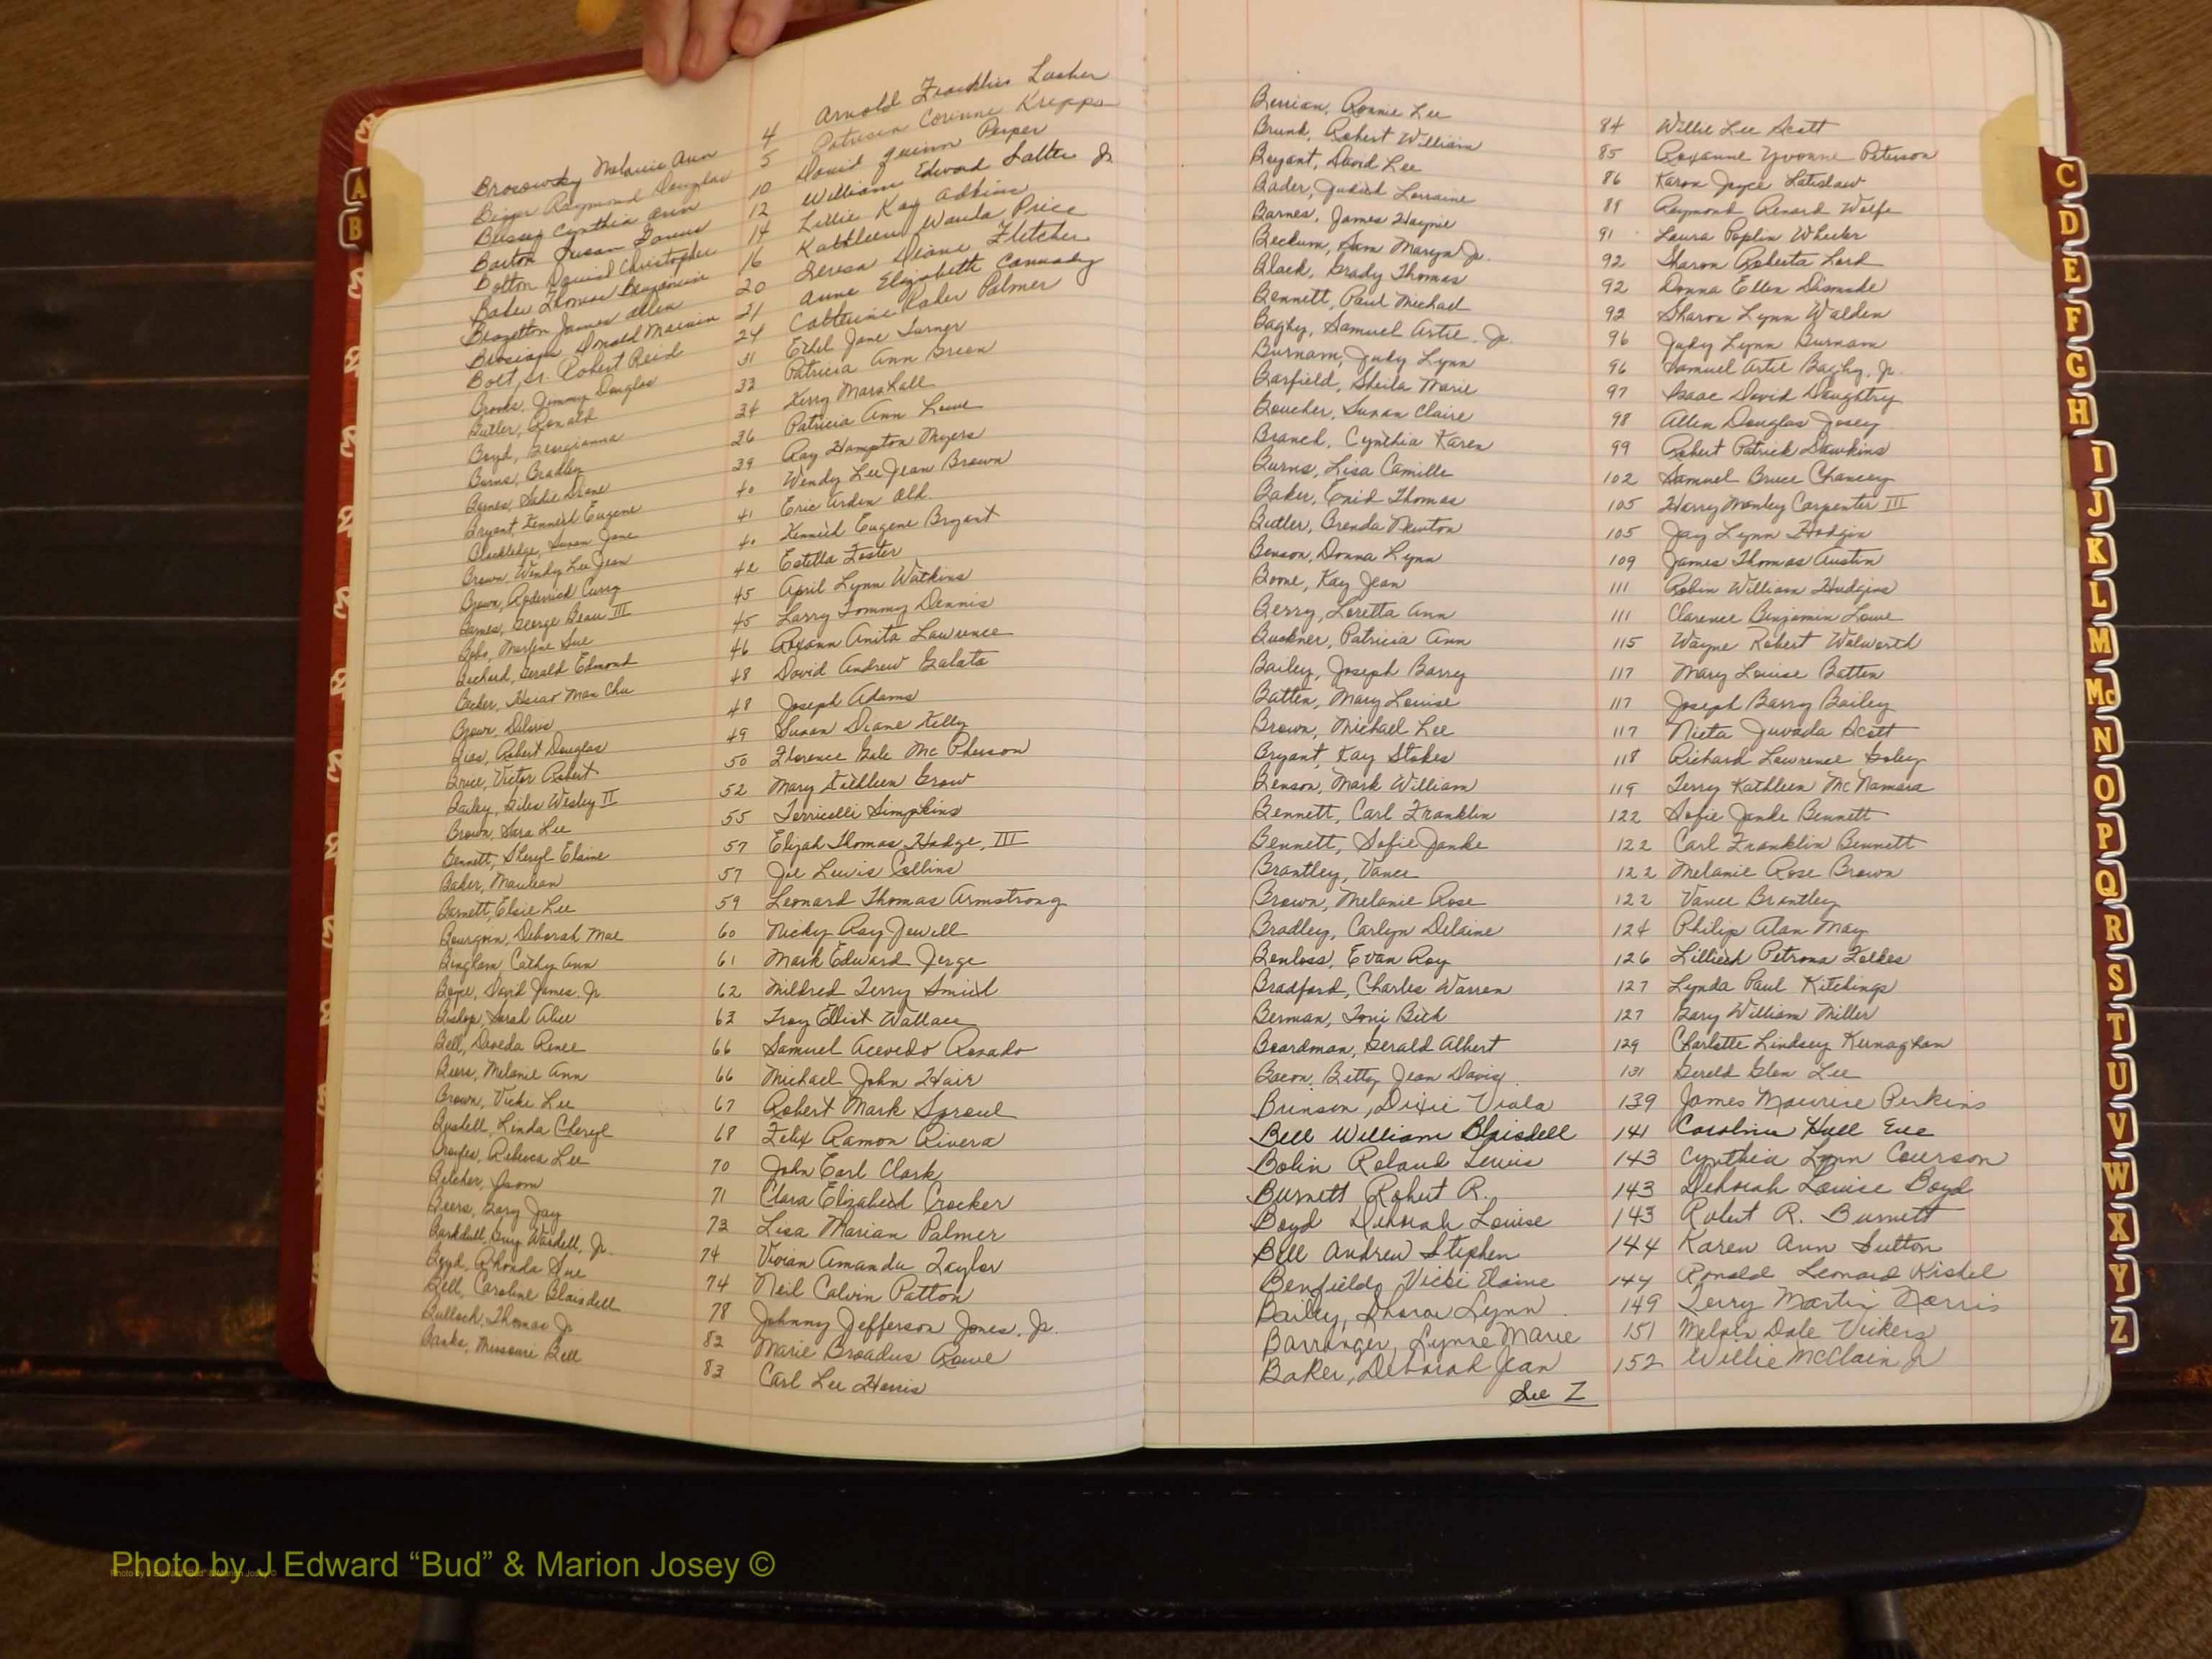 Brosowsky Melanie Ann 4 Arnold Franklin Lasher
Raymond Douglas 5 Patricia Corinne Kripps
Bussey Cynthia Ann 10 David Quinn Peeper
Barton Susan 12 William Edward Salter Jr
Bolton David Christopher 14 Lillie Kay Adkins
Baker Thomas Benjamin 16 Kathleen Wanda Price
Brazelton James Allen 20 Teresa Diane Fletcher
Donald Marvin 21 Anne Elizabeth Cannady
Bolt, Sr. Robert Reid 24 Catherine Raher Palmer
Brooks, Jimmy Douglas 31 Ethel Jane Turner
Butler, Ronald 33 Patricia Ann Green
Boyd, Georgianna 34 Kerry Marshall
Burns, Bradley 36 Patricia Ann Lowe
Barnes, Sadie Diane 39 Ray Hampton Myers
Bryant Kenneth Eugene 40 Wendy Lee Jean Brown
Blackledge, Susan Jane 41 Eric Arden Old
Brown, Wendy Lee Jean 40 Kenneth Eugene Bryant
Brown, Roderick Curry 42 Estella Foster
Barnes, George Beau III 45 April Lynn Watkins
Bobo, Marlene Sue 45 Larry Tommy Dennis
Bechard, Gerald Edmond 46 Roxann Anita Lawrence
Becker, Hsiao Man Chu 48 David Andrew Galata
Brown, Deloris 48 Joseph Adams
Bias, Robert Douglas 49 Susan Diane Kelly
Bruce, Victor Robert 50 Florence Gale McPherson
Bailey, Giles Wesley II 52 Mary Kathleen Grow
Brown, Sara Lee 55 Terricelli Simpkins
Bennett, Sheryl Elaine 57 Elijah Thomas Hodge, III
Baker, Maulean 57 Joe Lewis Collins
Barnett, Elsie Lee 59 Leonard Thomas Armstrong
Bourgoin, Deborah Mae 60 Nicky Ray Jewell
Bingham, Cathy Ann 61 Mark Edward Jerge
Boyce, David James, Jr. 62 Mildred Terry Smith
Bishop, Sarah Alice 63 Troy Elliot Wallace
Bell, Daveda Renee 66 Samuel Acevedo Rosado
Beers, Melanie Ann 66 Michael John Hair
Brown, Vicki Lee 67 Robert Mark Sproul
Linda Cheryl 68 Felix Ramon Rivera
Rebecca Lee 70 John Earl Clark
Belcher, Jason 71 Clara Elizabeth Crocker
Beers, Gary Jay 73 Lisa Marian Palmer
Barkdull, Guy Wardell, Jr. 74 Vivian Amanda Taylor
Boyd, Rhonda Sue 74 Neil Calvin Patton
Bell, Caroline Blaisdell 78 Johnny Jefferson Jones, Jr.
Bullock, Thomas Jr 82 Marie Broadus Rowe
Banks, Missouri Bell 83 Carl Lee Harris
Berrian, Ronnie Lee 84 Willie Lee Scott
Brunk, Robert William 85 Roxanne Yvonne Peterson
Bryant, David Lee 86 Karon Joyce Latislaw
Bader, Judith Lorraine 89 Raymond Renard Wolfe
Barnes, James Haynie 91 Laura Poplin Wheeler
Beckum, Sam Maryn Jr. 92 Sharon Roberta Lord
Black, Grady Thomas 92 Donna Ellen Dismuke
Bennett, Paul Michael 92 Sharon Lynn Walden
Bagby, Samuel Artie, Jr. 96 Judy Lynn Burnam
Burnam, Judy Lynn 96 Samuel Artie Bagby, Jr.
Barfield, Sheila Marie 97 Isaac David Daughtry
Boucher, Susan Claire 98 Allen Douglas Josey
Branch, Cynthia Karen 99 Robert Patrick Dawkins
Burns, Lisa Camille 102 Samuel Bruce Chancey
Baker, Enid Thomas 105 Harry Manley Carpenter III
Butler, Brenda Newton 105 Jay Lynn Hodgin
Benson, Donna Lynn 109 James Thomas Austin
Boone, Kay Jean 111 Robin William Hudgins
Berry, Loretta Ann 111 Clarence Benjamin Lowe
Buckner, Patricia Ann 115 Wayne Robert Walworth
Bailey, Joseph Barry 117 Mary Louise Batten
Batten, Mary Louise 117 Joseph Barry Bailey
Brown, Michael Lee 117 Nieta Juvada Scott
Bryant, Kay Stokes 118 Richard Lawrence Goley
Benson, Mark William 119 Terry Kathleen McNamara
Bennett, Carl Franklin 122 Sofie Janke Bennett
Bennett, Sofie Janke 122 Carl Franklin Bennett
Brantley, Vance 122 Melanie Rose Brown
Brown, Melanie Rose 122 Vance Brantley
Bradley, Carlyn Delaine 124 Philip Alan May
Benloss, Evan Roy 126 Lillieth Petrona Folkes
Bradford, Charles Warren 127 Lynda Paul Kitchings
Berman, Toni Beth 127 Gary William Miller
Boardman, Gerald Albert 129 Charlotte Lindsey Kernaghan
Bacon, Betty Jean Davis 131 Gereld Glen Lee
Brinson, Dixie Viola 139 James Maurice Perkins
Bell William Blaisdell 141 Carolina Hull Eve
Bolin Roland Lewis 143 Cynthia Lynn Courson
Burnett Robert R. 143 Deborah Louise Boyd
Boyd Deborah Louise 143 Robert R. Burnett
Bell Andrew Stephen 144 Karen Ann Sutton
Benfield, Vicki Elaine 144 Ronald Leonard Kistel
Bailey, Sharon Lynn 149 Terry Martin Norris
Barranger, Lynne Marie 151 Melvin Dale Vickers
Baker, Deborah Jean 152 Willie McClain Jr
See Z
A
B
C
D
E
F
G
H
I
J
K
L
M
Mc
N
O
P
Q
R
S
T
U
V
W
X
Y
Z
Photo by J Edward “Bud” & Marion Josey ©
Photo by J Edward “Bud” & Marion Josey ©